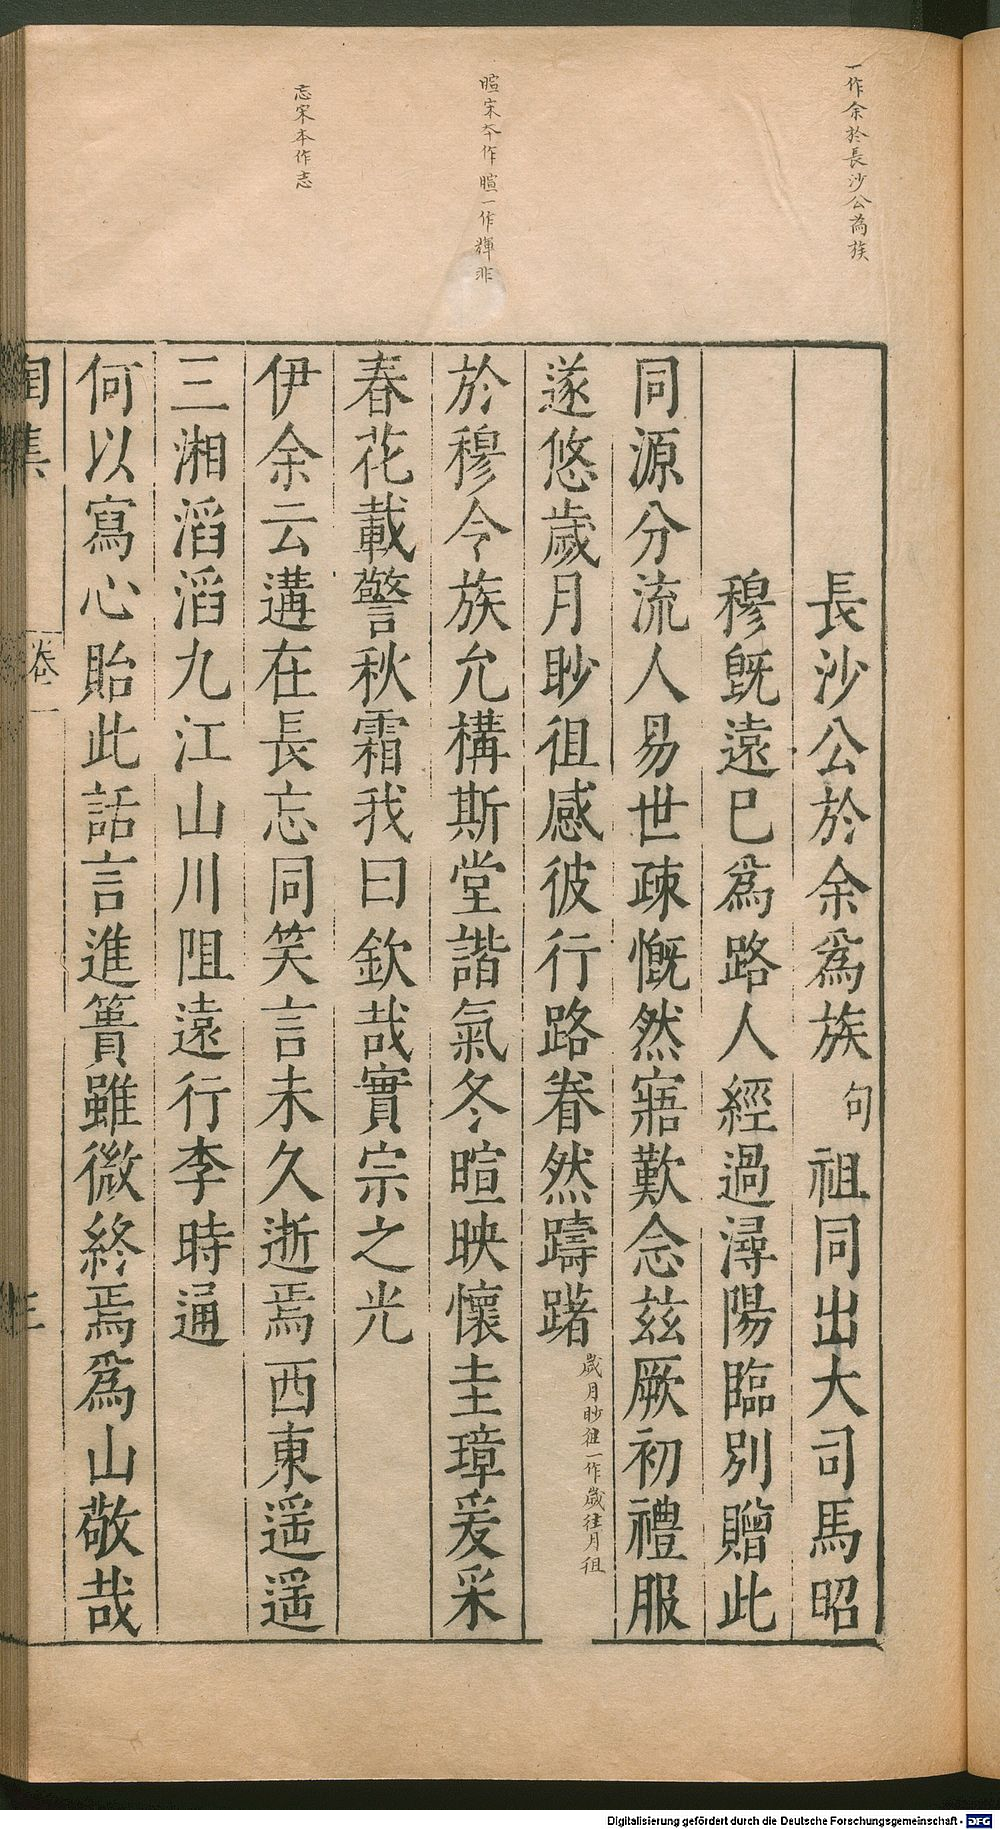 一作余於長沙公為族
暄宋本作暄一作輝非
忘宋本作志
長沙公於余爲族句祖同出大司馬昭
穆旣遠已爲路人經過潯陽臨別贈此
同源分流人易世疎慨然寤歎念茲厥初禮服
遂悠歲月眇徂感彼行路眷然躊躇歲月眇徂一作歲往月徂
於穆令族允構斯堂諧氣冬暄映懷圭璋爰采
春花載警秋霜我曰欽哉實宗之光
伊余云遘在長忘同笑言未久逝焉西東遥遥
三湘滔滔九江山川阻遠行李時通
何以寫心貽此話言進簣雖微終焉爲山敬哉
陶集 卷一
Digitalisierung gefördert durch die Deutsche Forschungsgemeinschaft - DFG